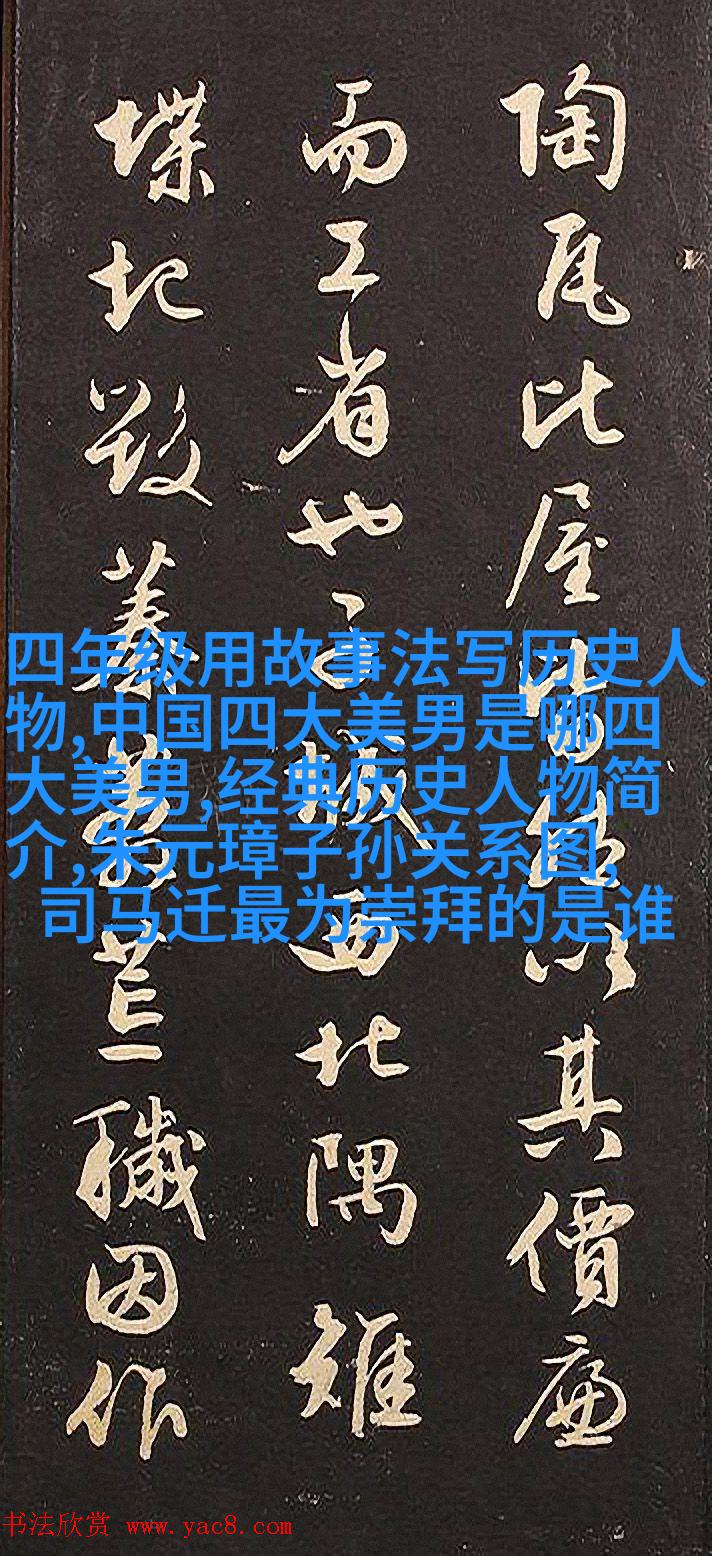 陶瓦比屋皆然以其價廉
而工省也子城西北隅雉
堞圮毀蓁莽荒穢因作
四年级用故事法写历史人
物,中国四大美男是哪四
大美男,经典历史人物简
介,朱元璋子孙关系图,
司马迁最为崇拜的是谁
书法欣赏 www.yac8.com